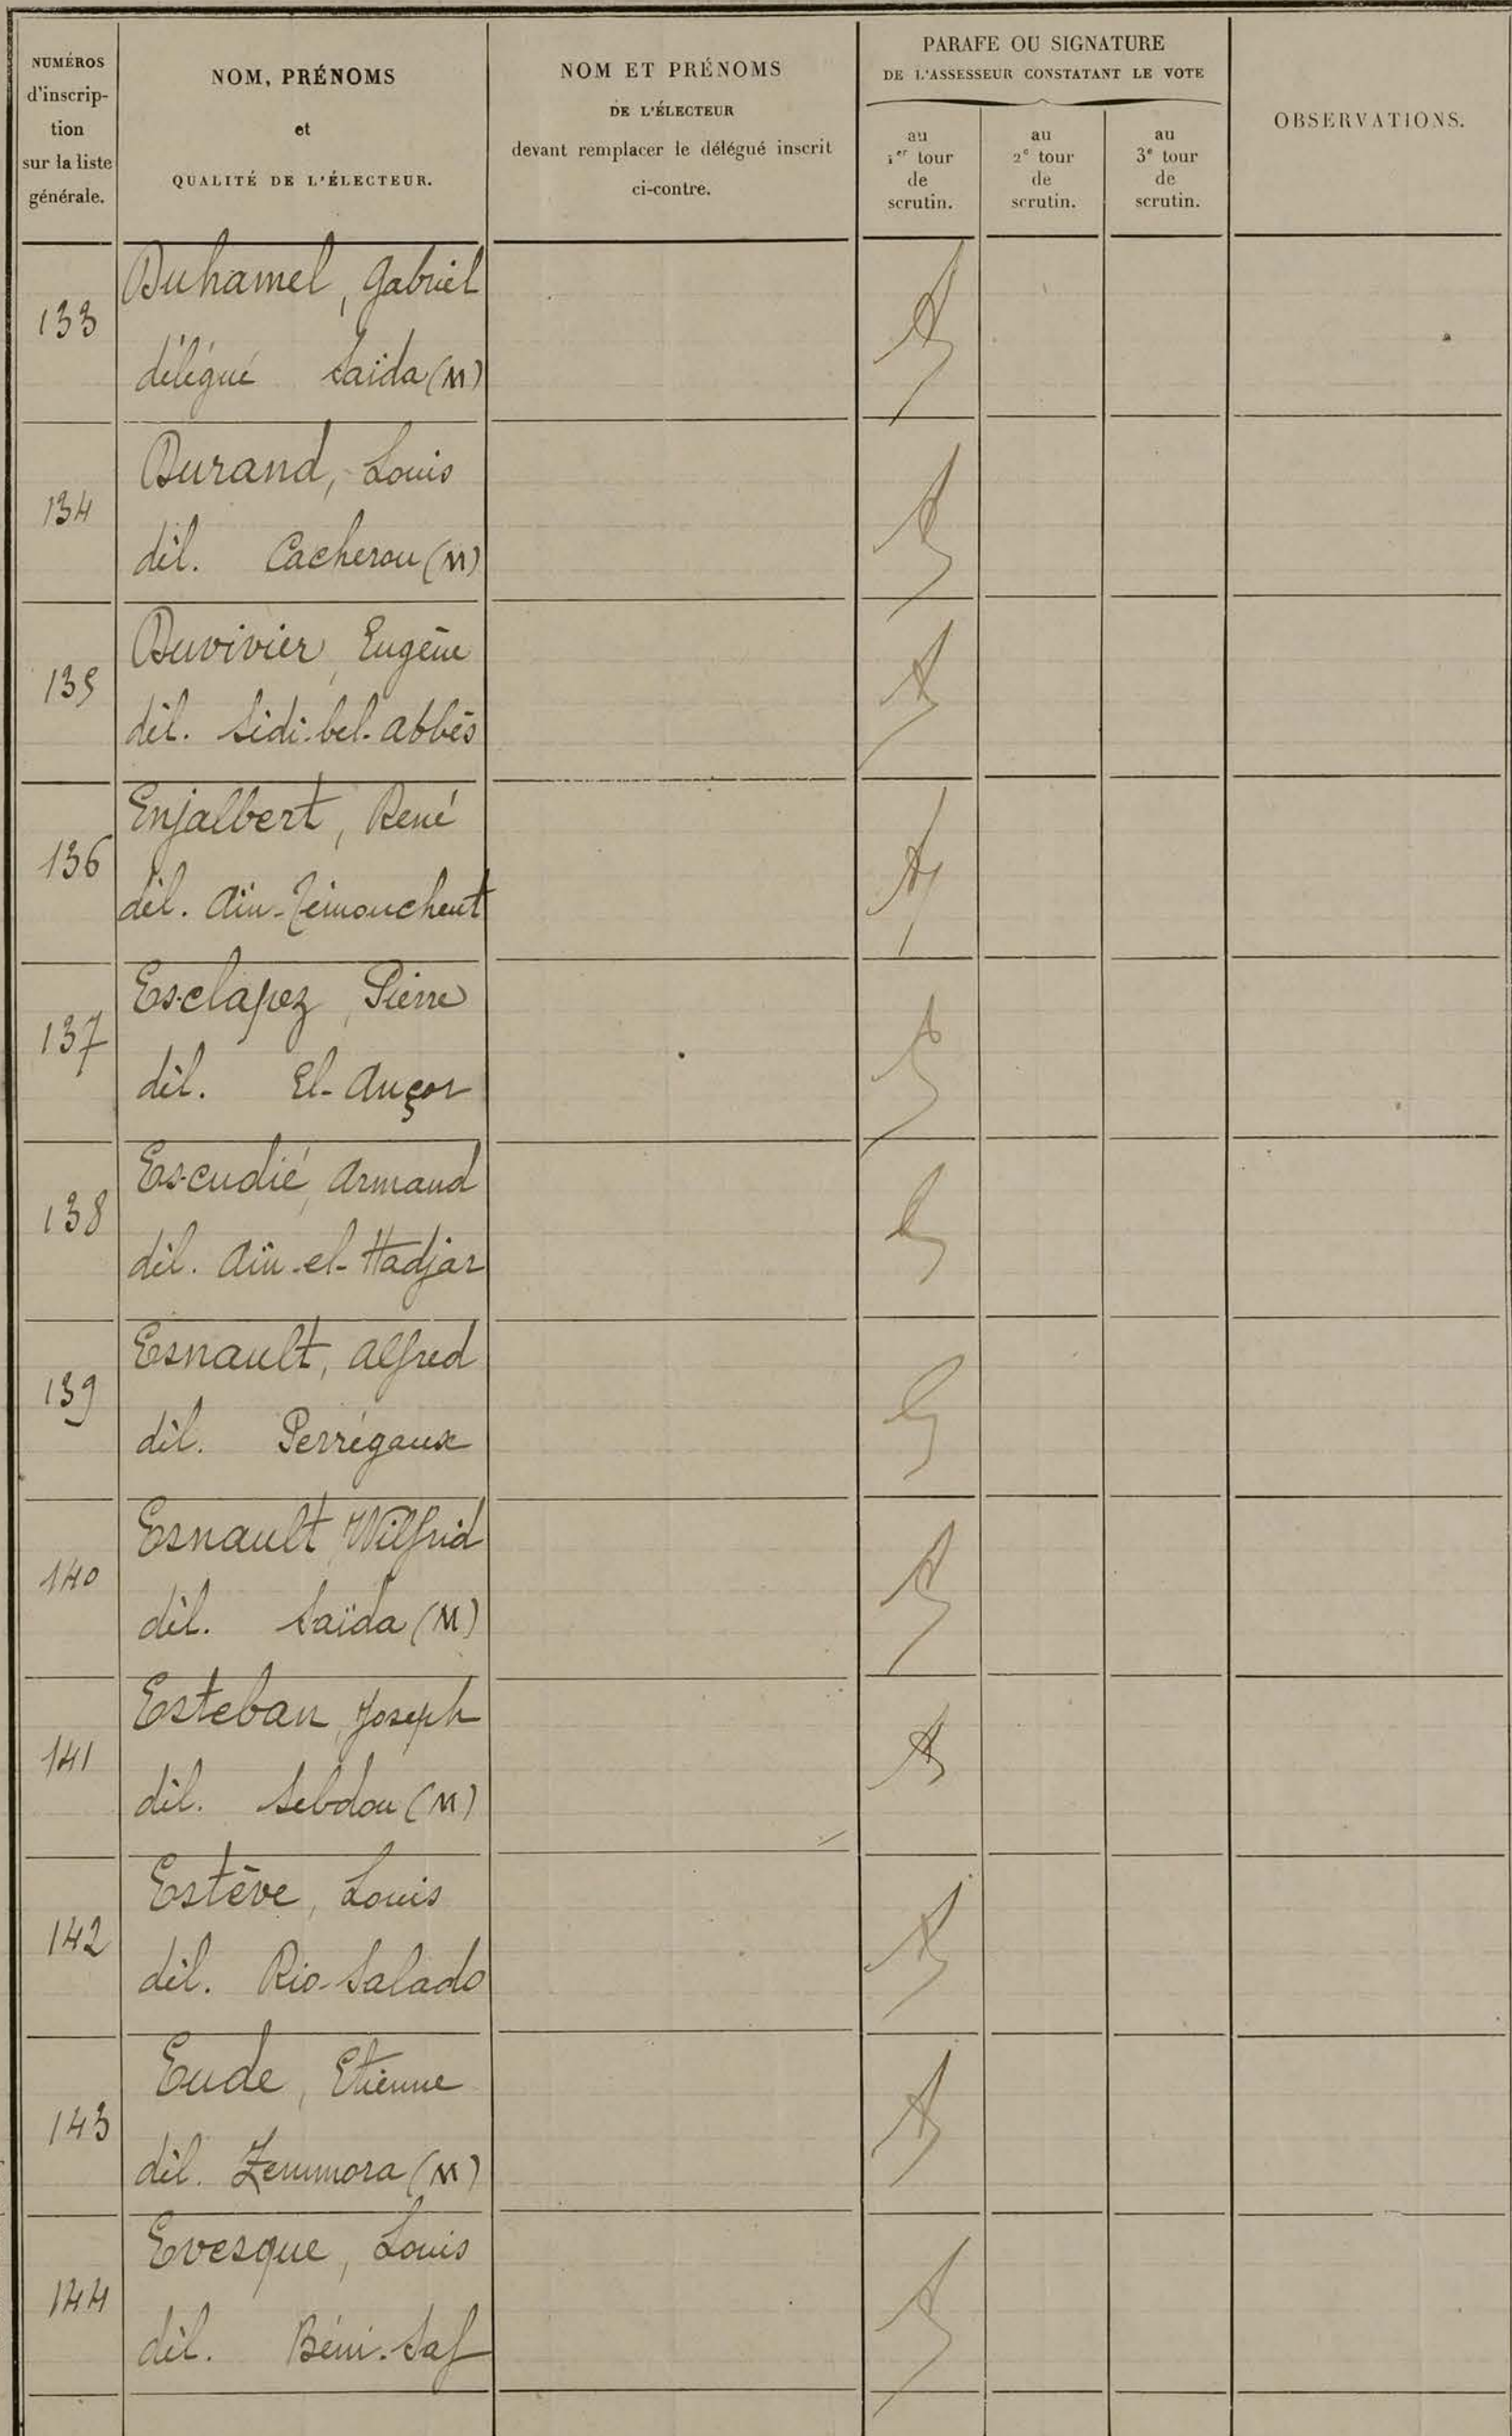 NUMÉROS
d'inscrip-
tion
sur la liste
générale.
NOM, PRÉNOMS
et
QUALITÉ DE L'ÉLECTEUR.
NOM ET PRÉNOMS
DE L'ÉLECTEUR
devant remplacer le délégué inscrit
ci-contre.
PARAFE OU SIGNATURE
DE L'ASSESSEUR CONSTATANT LE VOTE
au
1er tour
de
scrutin.
au
2e tour
de
scrutin.
au
3e tour
de
scrutin.
OBSERVATIONS.
133
Duhamel, Gabriel
délégué Saïda (M)
134
Durand, Louis
dél. Cacherou (M)
135
Duvivier, Eugène
dél. Sidi-bel-abbès
136
Enjalbert, René
dél. Aïn-Témouchent
137
Esclapez, Pierre
dél. El-Ançor
138
Escudié, Armand
dél. Aïn-el-Hadjar
139
Esnault, Alfred
dél. Perrégaux
140
Esnault, Wilfrid
dél. Saïda (M)
141
Esteban, Joseph
dél. Sebdou (M)
142
Estève, Louis
dél. Rio-Salado
143
Eude, Etienne
dél. Zemmora (M)
144
Evesque, Louis
dél. Béni-Saf